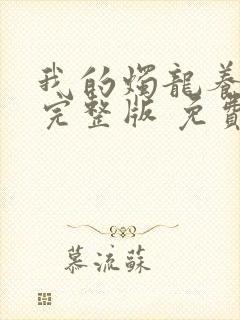 我的燭龍養
完整版 免費
慕流蘇